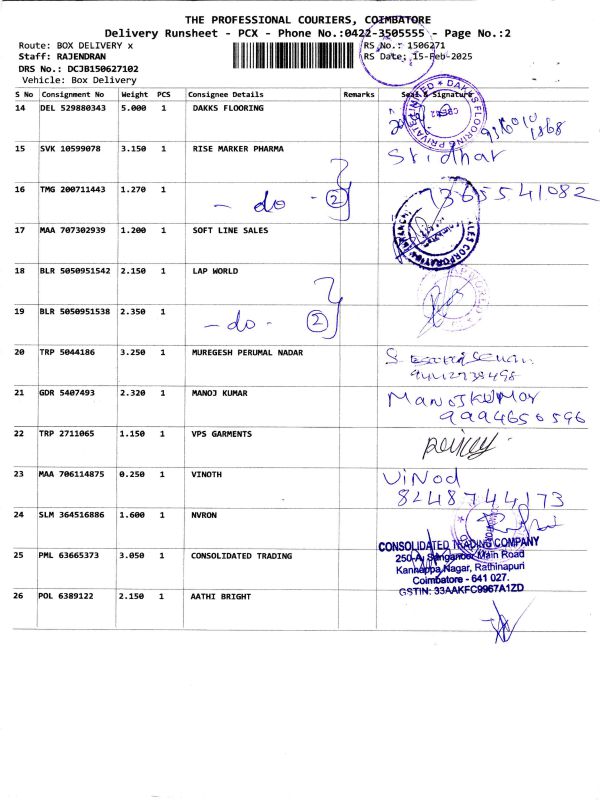 THE PROFESSIONAL COURIERS, COIMBATORE
Delivery Runsheet - PCX - Phone No.:0422-3505555 - Page No.:2
Route: BOX DELIVERY x RS No.: 1506271
Staff: RAJENDRAN RS Date: 15-Feb-2025
DRS No.: DCJB150627102
Vehicle: Box Delivery
S No Consignment No Weight PCS Consignee Details Remarks Seal & Signature
14 DEL 529880343 5.000 1 DAKKS FLOORING
DAKKS FLOORING PRIVATE LIMITED
15 SVK 10599078 3.150 1 RISE MARKER PHARMA Sridhar
16 TMG 200711443 1.270 1 - do - 2 7365541082
17 MAA 707302939 1.200 1 SOFT LINE SALES
18 BLR 5050951542 2.150 1 LAP WORLD
19 BLR 5050951538 2.350 1 - do - 2
20 TRP 5044186 3.250 1 MUREGESH PERUMAL NADAR
21 GDR 5407493 2.320 1 MANOJ KUMAR MANOJKUMAR
9994656596
22 TRP 2711065 1.150 1 VPS GARMENTS
23 MAA 706114875 0.250 1 VINOTH ViNod
8248744173
24 SLM 364516886 1.600 1 NVRON
25 PML 63665373 3.050 1 CONSOLIDATED TRADING
CONSOLIDATED TRADING COMPANY
250-A, Sanganoor Main Road
Kannappa Nagar, Rathinapuri
Coimbatore - 641 027.
GSTIN: 33AAKFC9967A1ZD
26 POL 6389122 2.150 1 AATHI BRIGHT